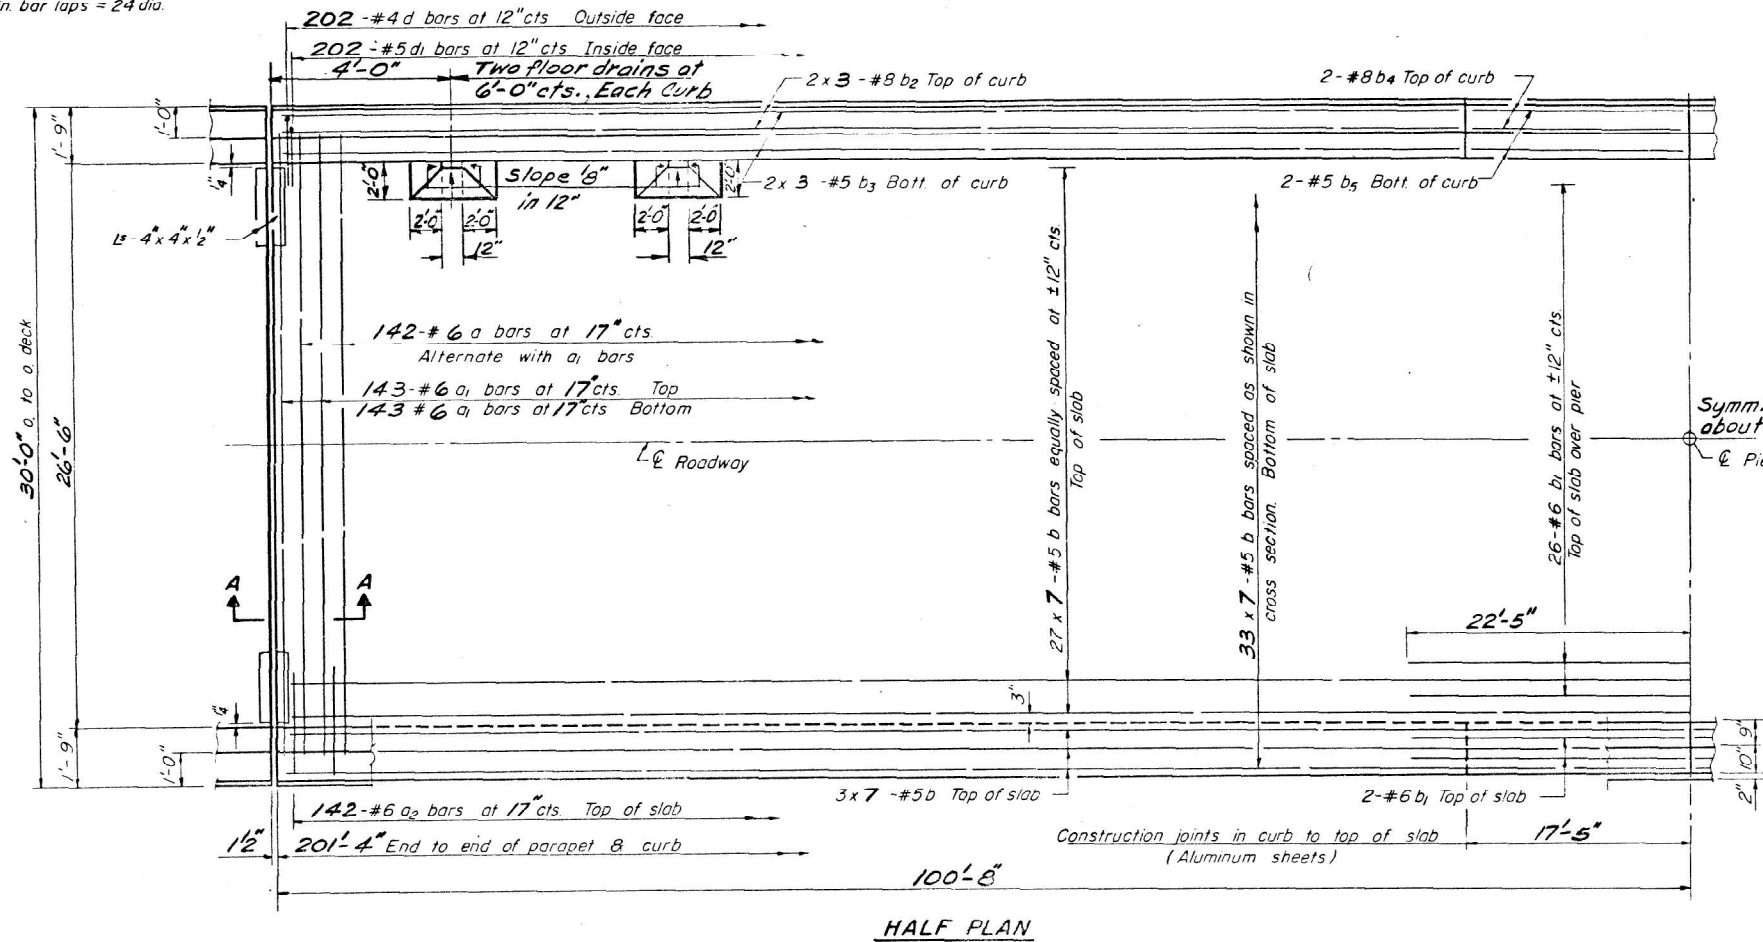 n. bar laps = 24 dia.
202 - #4 d bars at 12" cts Outside face
202 - #5 d1 bars at 12" cts Inside face
4'-0"
Two floor drains at
6'-0" cts., Each Curb
2 x 3 - #8 b2 Top of curb
2 - #8 b4 Top of curb
1'-9"
1'-0"
1/4"
2'-0"
Slope 1/8"
in 12"
2'-0"
2 x 3 - #5 b3 Bott. of curb
2 - #5 b5 Bott. of curb
2'-0"
2'-0"
2'-0"
2'-0"
12"
12"
Ls - 4" x 4" x 1/2"
30'-0" o. to o. deck
26'-6"
142 - # 6 a bars at 17" cts.
Alternate with a1 bars
143 - # 6 a1 bars at 17" cts. Top
143 # 6 a1 bars at 17" cts Bottom
℄ Roadway
27 x 7 - #5 b bars equally spaced at ±12" cts.
Top of slab
33 x 7 - #5 b bars spaced as shown in
cross section. Bottom of slab
26 - #6 b1 bars at ±12" cts.
Top of slab over pier
Symm.
about
℄
A
A
22'-5"
3"
1/4"
1'-9"
1'-0"
9"
10"
2"
142 - #6 a2 bars at 17" cts. Top of slab
3 x 7 - #5 b Top of slab
2 - #6 b1 Top of slab
1 1/2"
201'-4" End to end of parapet & curb
Construction joints in curb to top of slab
(Aluminum sheets)
17'-5"
100'-8"
HALF PLAN